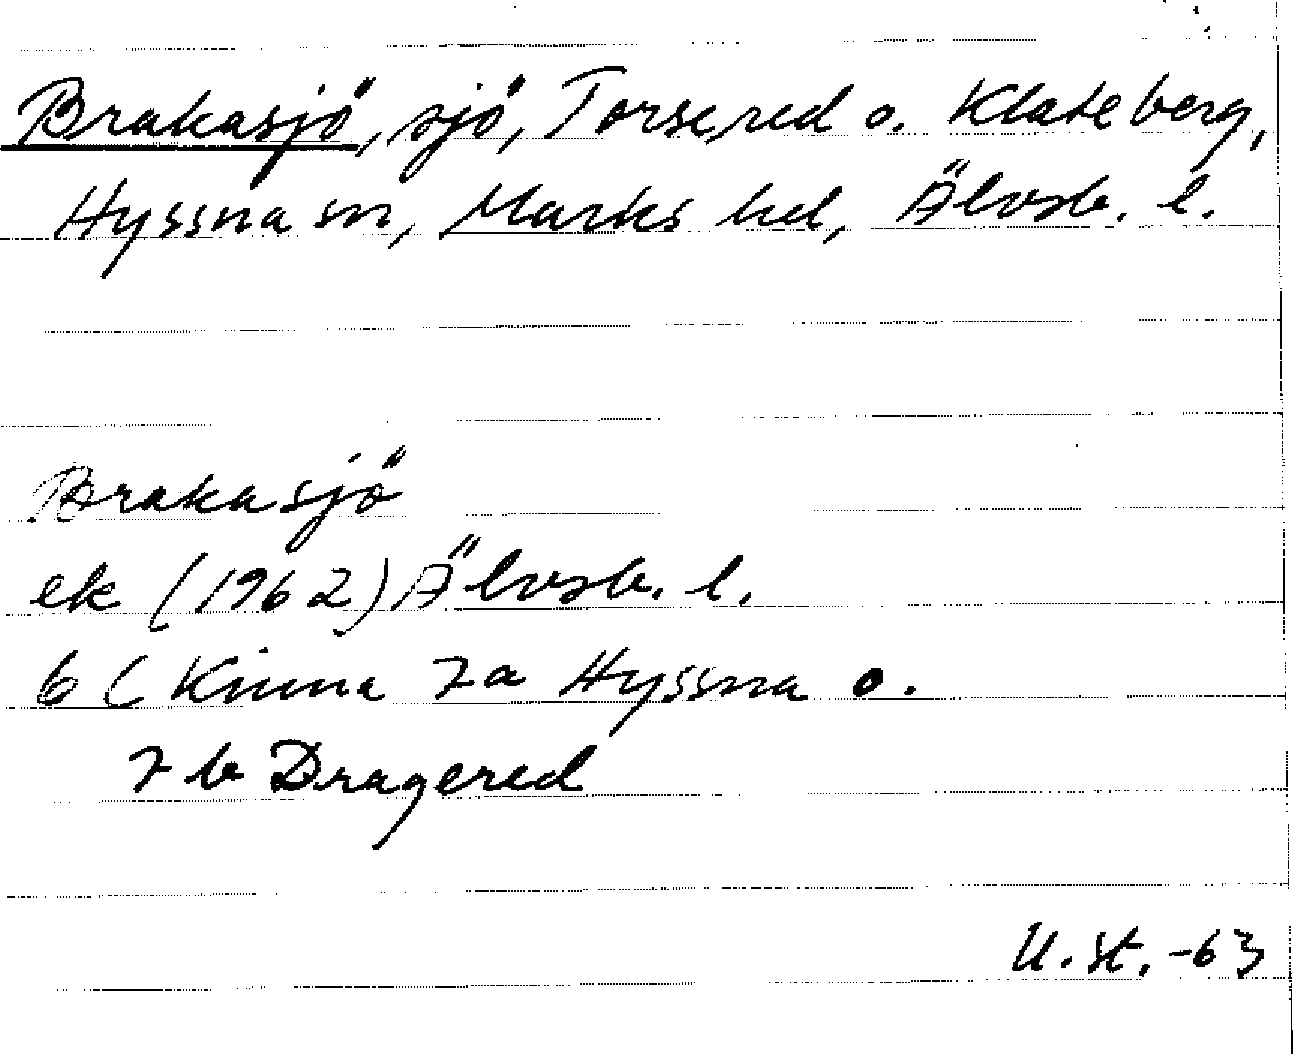 Brakasjö, sjö, Torsered o. Klateberg,
Hyssna sn, Marks hd, Älvsb. l.
Brakasjö
ek (1962) Älvsb. l.
6 C Kinna 7a Hyssna o.
7 b Dragered
U. St. -63